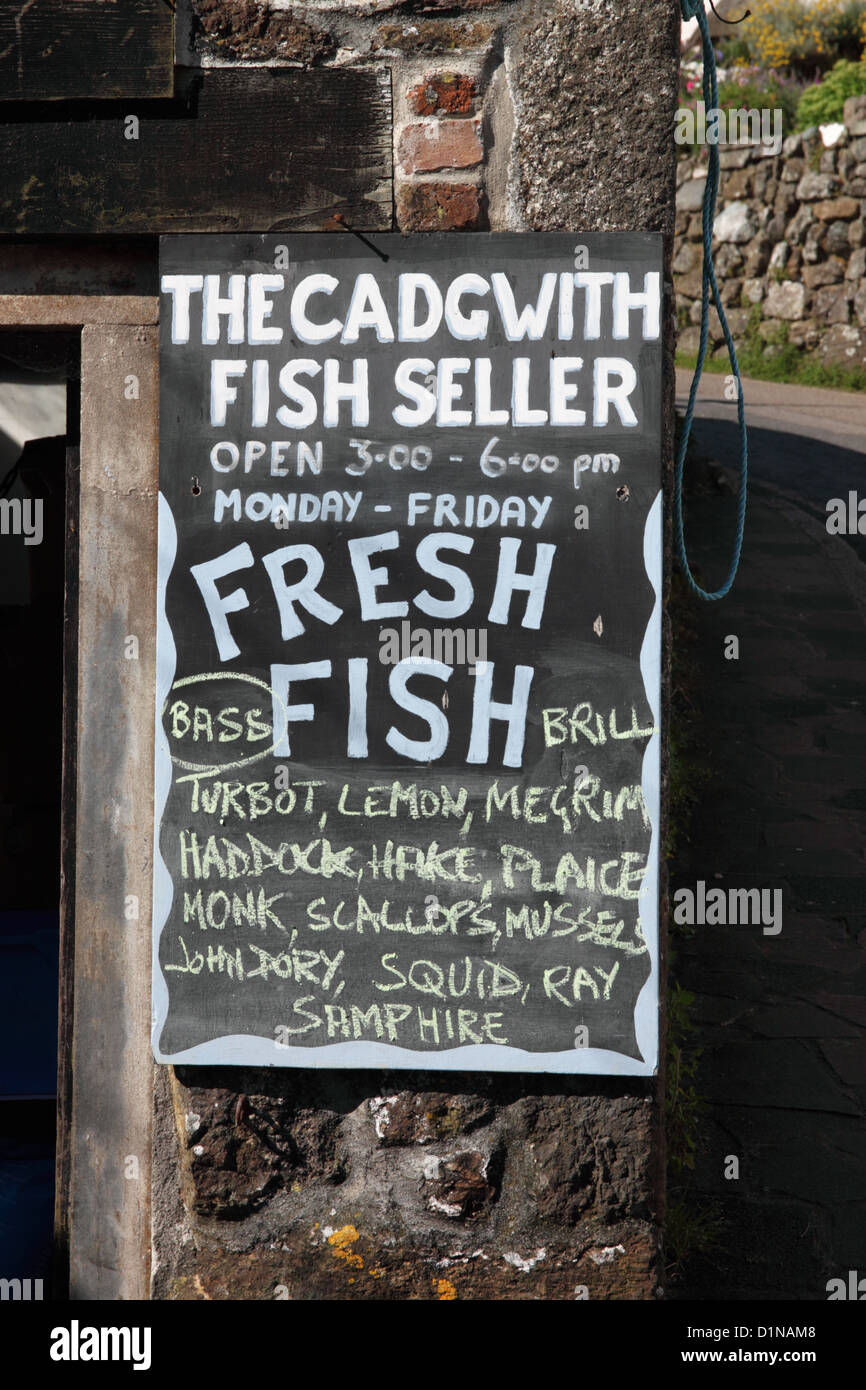 THE CADGWITH
FISH SELLER
OPEN 3.00 - 6.00 pm
MONDAY - FRIDAY
FRESH
FISH
BASS BRILL
TURBOT, LEMON, MEGRIM
HADDOCK, HAKE, PLAICE
MONK, SCALLOPS, MUSSELS
JOHN DORY, SQUID, RAY
SAMPHIRE
alamy
Image ID: D1NAM8
www.alamy.com